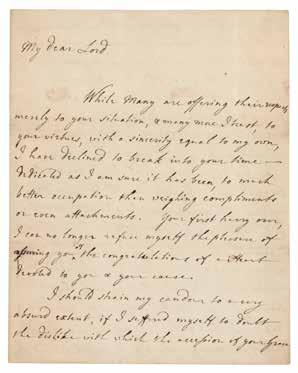 My dear Lord
While Many are offering their respects
merely to your situation, & many more I trust, to
your virtues, with a sincerity equal to my own,
I have declined to break into your time –
dedicated as I am sure it has been, to much
better occupation than weighing compliments
or even attachments. Your first hurry over,
I can no longer refuse myself the pleasure of
assuring you of the congratulations of a Heart
devoted to you & your cause.
I should strain my candour to a very
absurd extent, if I suffered myself to doubt
the dislike with which the accession of your